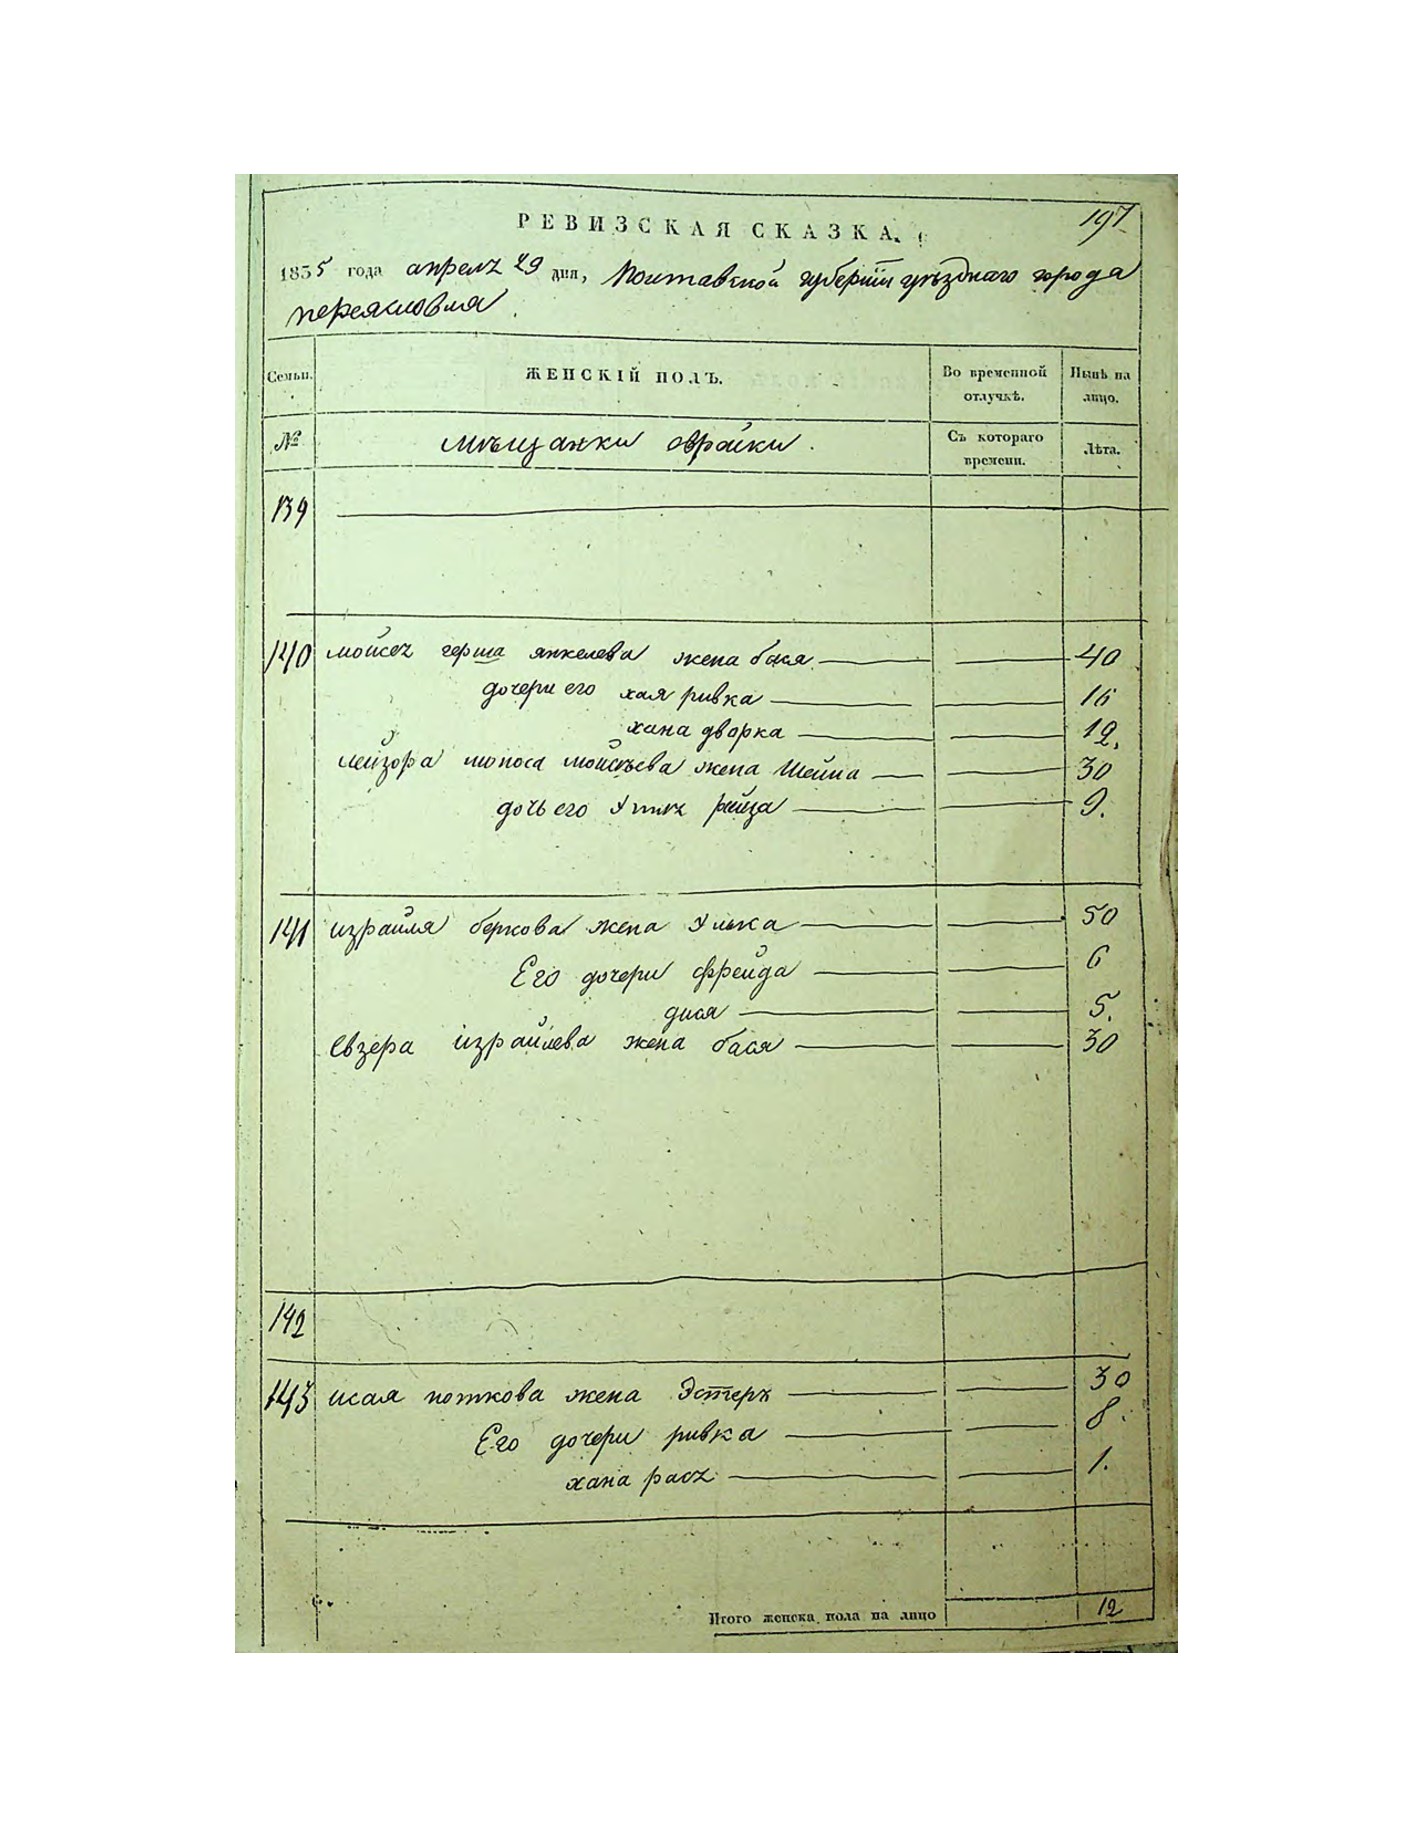 197
РЕВИЗСКАЯ СКАЗКА.
1835 года апреля 29 дня, Полтавской губернiи уѣзднаго города
переяславля
Семьи.
ЖЕНСКIЙ ПОЛЪ.
Во временной отлучкѣ.
Нынѣ на лицо.
№
мѣщанки еврейки.
Съ котораго времени.
Лѣта.
139
140 мойсея герша янкелева жена бася 40
дочери его хая ривка 16
хана дворка 12.
лейзора мойсѣева жена Шейна 30
дочь его рейза 9.
141 израйля беркова жена 50
Его дочери фрейда 6
дися 5.
Евзера израйлева жена бася 30
142
143 исаяноткова жена Эстеръ 30
Его дочери ривка 8.
хана рася 1.
Итого женска пола на лицо 12